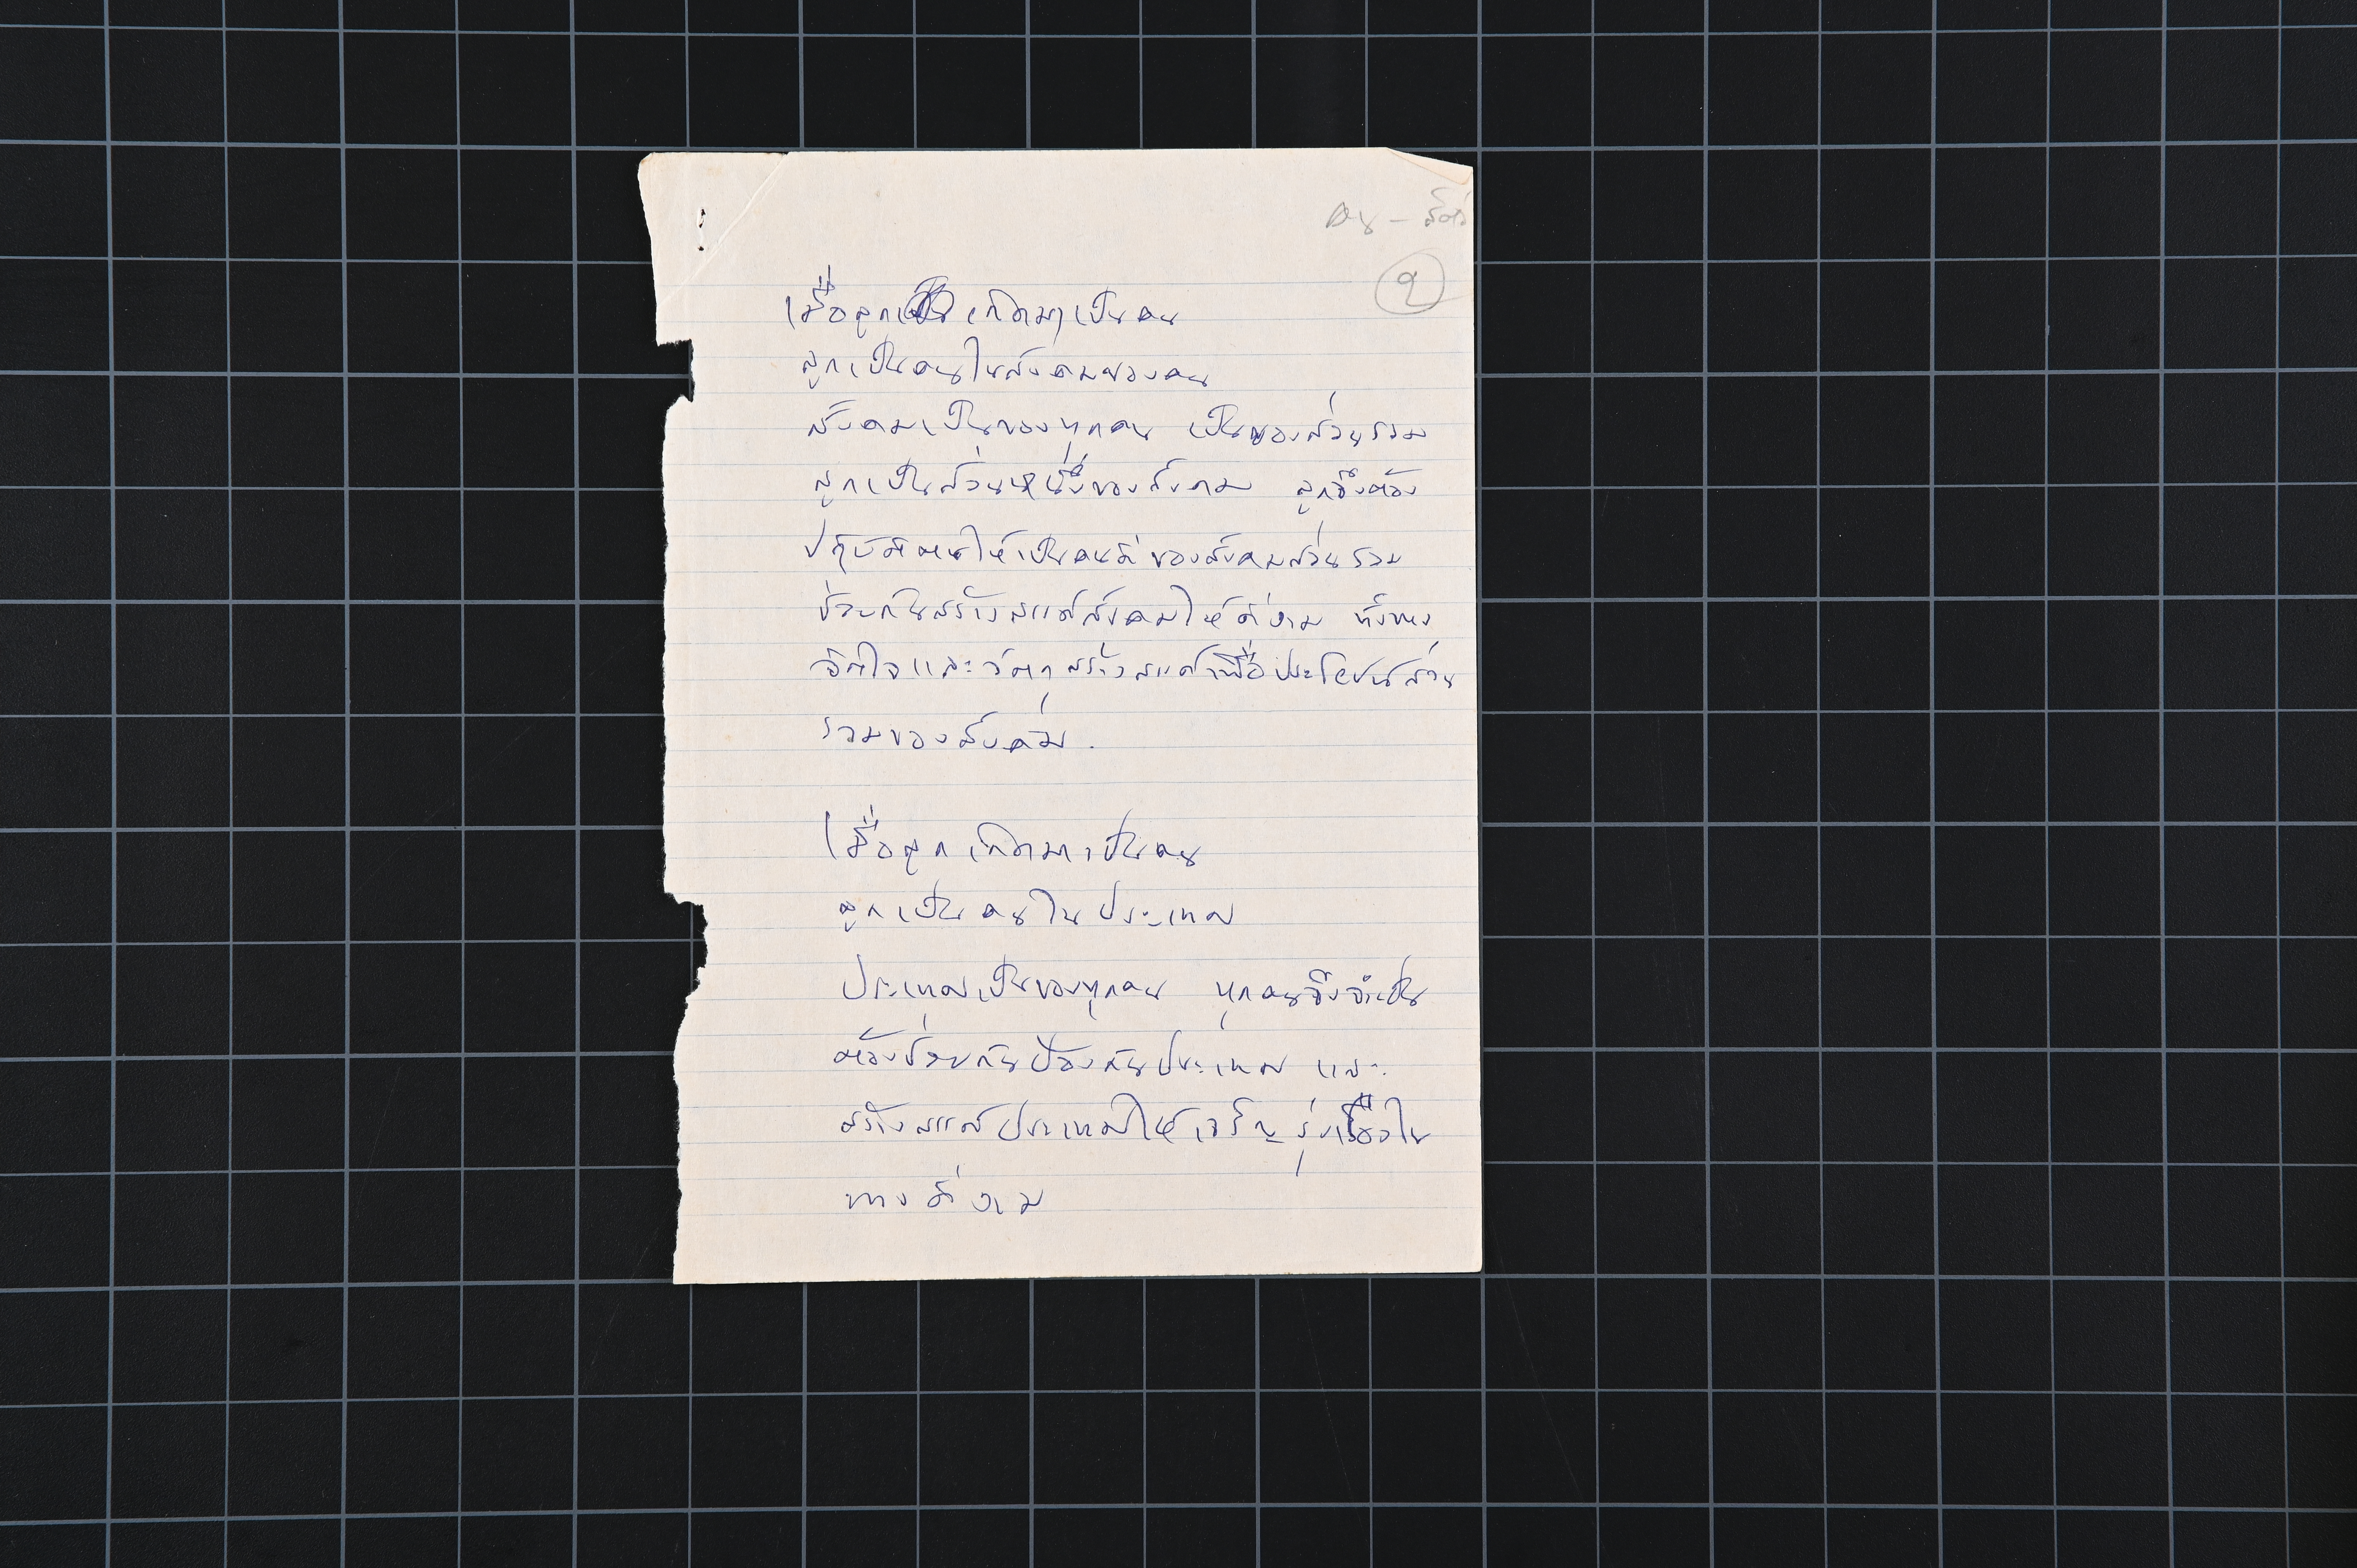 คน – สัตว์
๑
เมื่อลูก เกิดมาเป็นคน
ลูกเป็นคนในสังคมของคน
สังคมเป็นของทุกคน เป็นของส่วนรวม
ลูกเป็นส่วนหนึ่งของสังคม ลูกจึงต้อง
ปฏิบัติตนให้เป็นคนดีของสังคมส่วนรวม
ช่วยกันสร้างสรรค์สังคมให้ดีงาม ทั้งทาง
จิตใจและวัตถุ สร้างสรรค์เพื่อประโยชน์ส่วน
รวมของสังคม.
เมื่อลูกเกิดมาเป็นคน
ลูกเป็นคนในประเทศ
ประเทศเป็นของทุกคน ทุกคนจึงจำเป็น
ต้องช่วยกันป้องกันประเทศ และ
สร้างสรรค์ประเทศให้เจริญรุ่งเรืองใน
ทางดีงาม